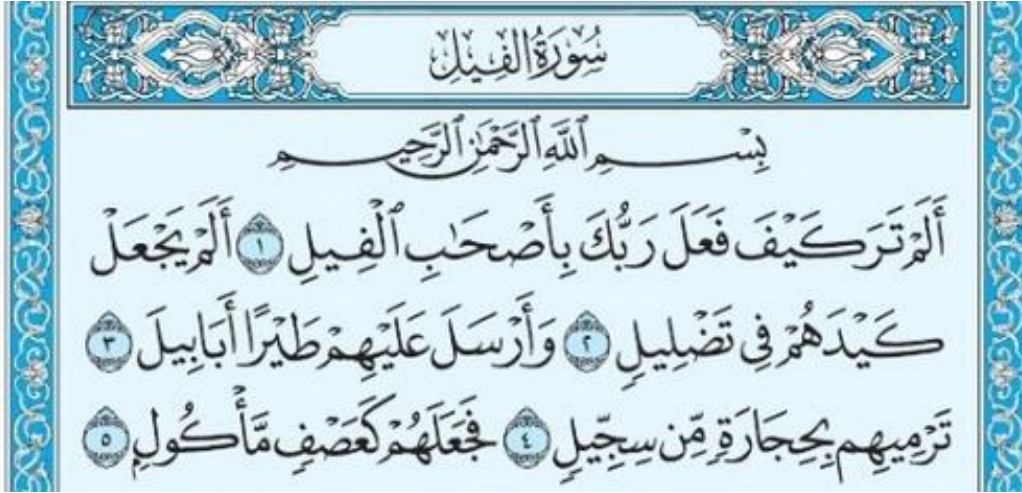 سُورَةُ الْفِيلِ
بِسْمِ ٱللَّهِ ٱلرَّحْمَٰنِ ٱلرَّحِيمِ
أَلَمْ تَرَ كَيْفَ فَعَلَ رَبُّكَ بِأَصْحَٰبِ ٱلْفِيلِ ١ أَلَمْ يَجْعَلْ
كَيْدَهُمْ فِى تَضْلِيلٍ ٢ وَأَرْسَلَ عَلَيْهِمْ طَيْرًا أَبَابِيلَ ٣
تَرْمِيهِم بِحِجَارَةٍ مِّن سِجِّيلٍ ٤ فَجَعَلَهُمْ كَعَصْفٍ مَّأْكُولٍ ٥